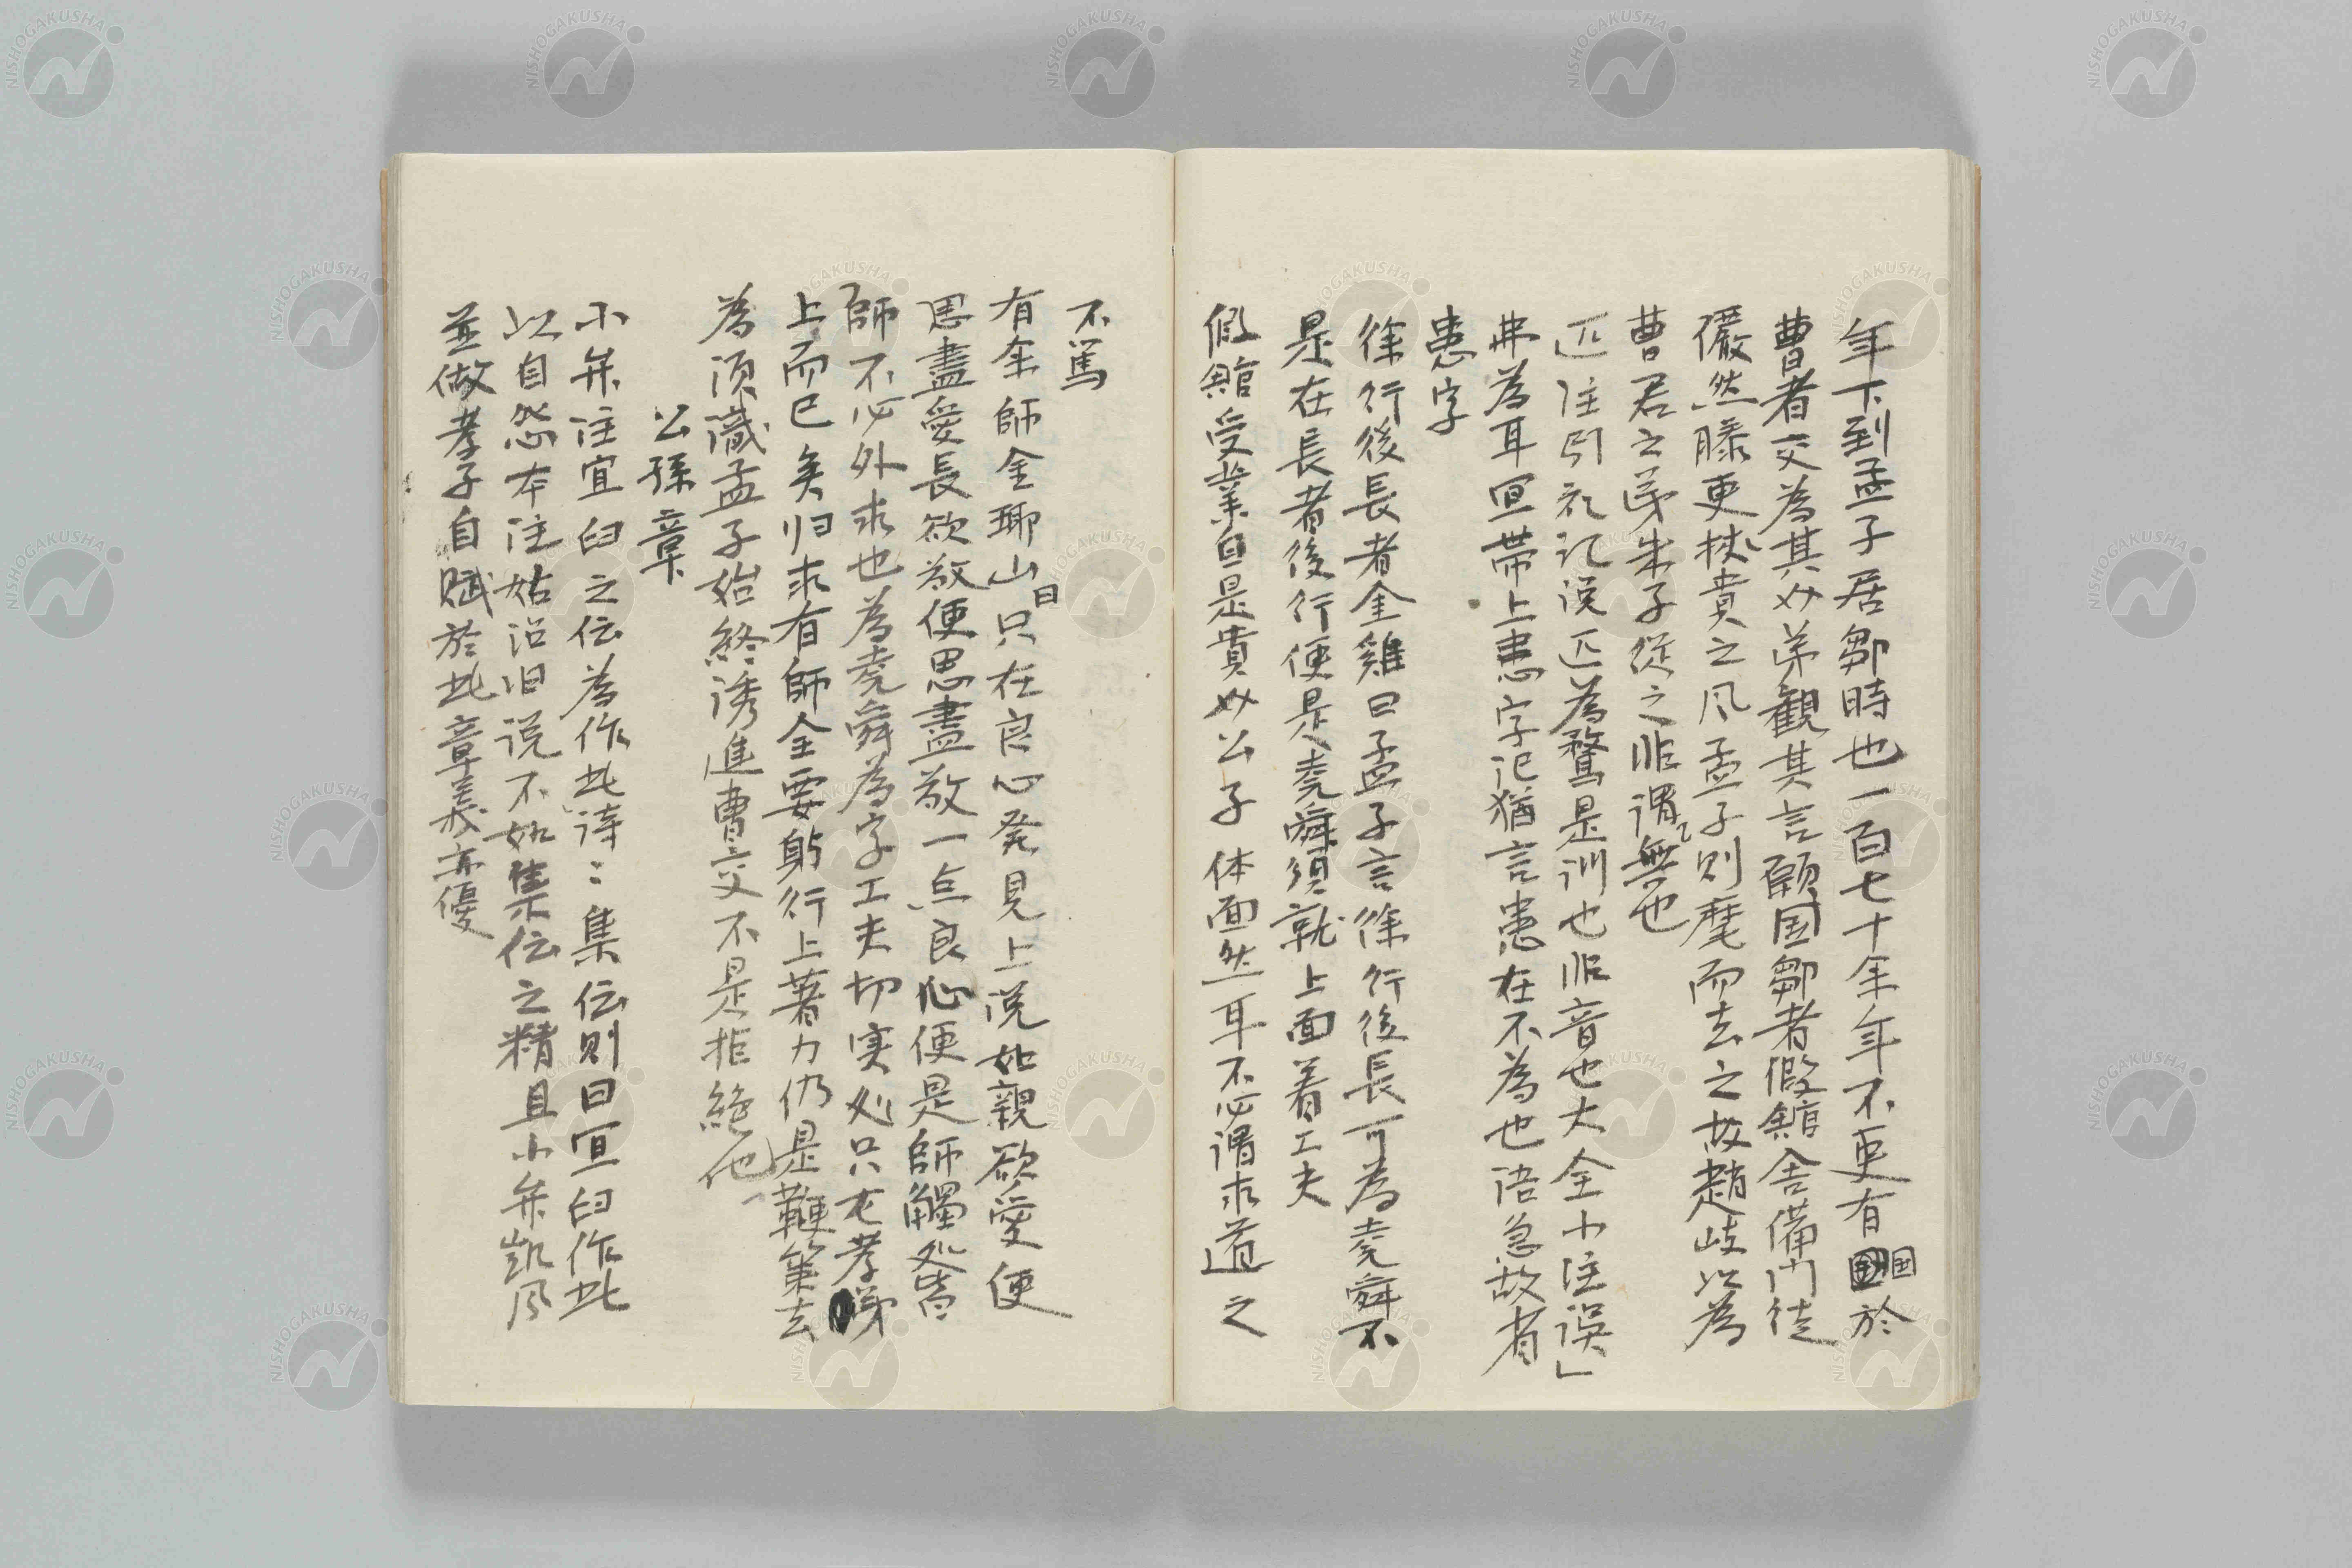 年下到孟子居鄒時也一百七十余年不更有国於
曹者交為其必弟観其言顧国鄒者假舘舎備門徒
儼然滕更挾貴之风孟子則麾而去之故趙岐以為
曹君之弟朱子従之非謂無也
匹注引礼記说匹為鶩是训也非音也大全小注误
弗為耳宜帯上患字记猶言患在不為也语急故省
患字
徐行後長者金雞曰孟子言徐行後長可為堯舜不
是在長者後行便是堯舜須就上面着工夫
假舘受業自是貴公子体面然耳不必谓求道之
不篤
有余師金瑯山曰只在良心発見上说如親欲愛便
思盡愛長欲敬便思盡敬一点良心便是師觸処皆
師不必外求也為堯舜為字工夫切実処只在孝弟
上而已矣归求有師全要躬行上著力仍是鞭策去
為須識孟子始終誘進曹交不是拒絶他
公孫章
小弁注宜臼之伝為作此诗〻集伝則曰宜臼作此
以自怨本注姑沿旧说不如集伝之精且小弁凱风
並做孝子自賦於此章義亦優